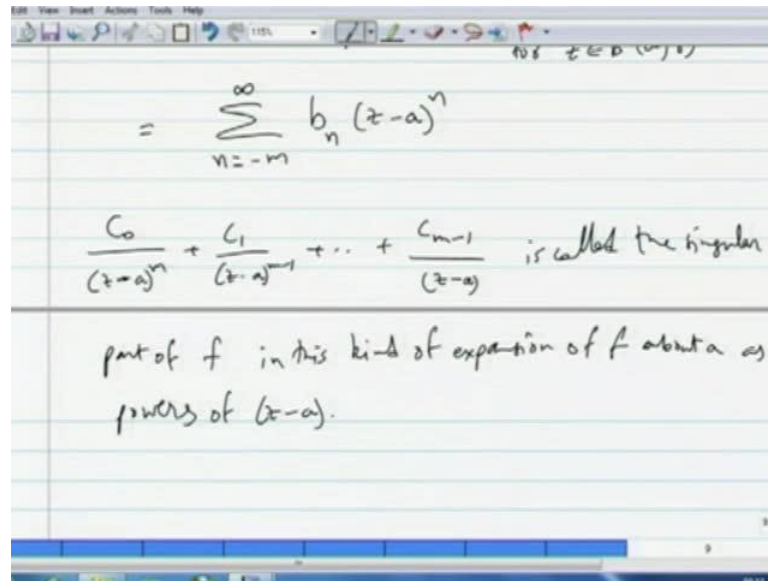 Edit View Insert Actions Tools Help
115%
for z ∈ B (a, r)
= ∑_{n=-m}^{∞} b_n (z-a)^n
C_0/(z-a)^m + C_1/(z-a)^{m-1} + ... + C_{m-1}/(z-a) is called the singular
part of f in this kind of expansion of f about a as
powers of (z-a).
9